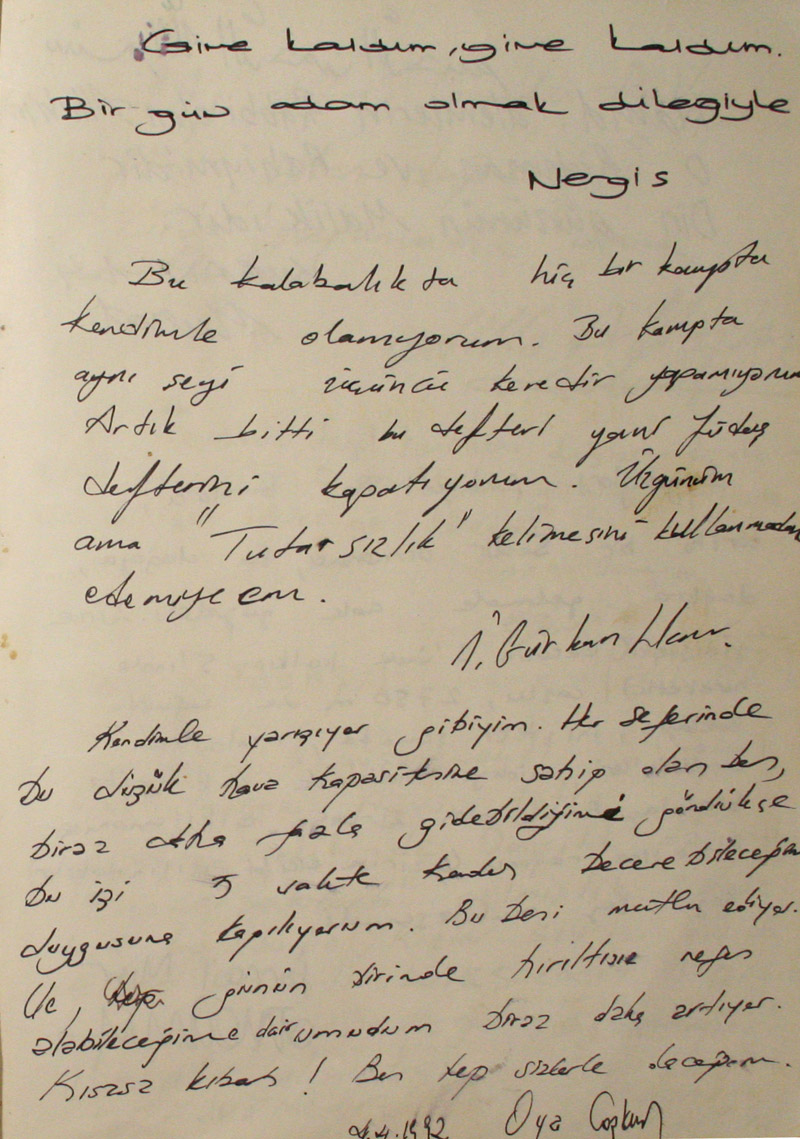 Gine kaldım, gine kaldım.
Bir gün adam olmak dileğiyle
Nergis
Bu kalabalıkta hiç bir kampta
kendimle olamıyorum. Bu kampta
aynı şeyi üçüncü keredir yapamıyorum
Artık bitti bu defteri yani
defterini kapatıyorum. Üzgünüm
ama "Tutarsızlık" kelimesini kullanmadan
edemiyecem.
İ. Gürkan
Kendimle yarışıyor gibiyim. Her seferinde
bu düşük hava kapasitesine sahip olan ben,
biraz daha fazla gidebildiğimi gördükçe
bu işi 5 vakte kadar becerebileceğim
duygusuna kapılıyorum. Bu beni mutlu ediyor.
Ve, günün birinde hırıltısız nefes
alabileceğime dair umudum biraz daha artıyor.
Kısasa kısas! Ben hep sizlerle
4.4.1992 Oya Coşkun